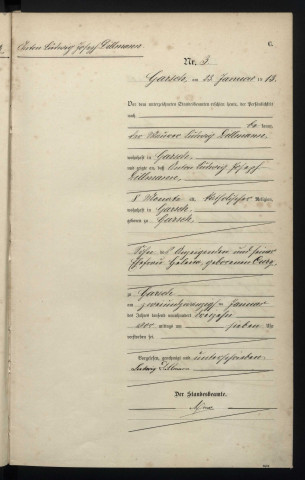 Anton Ludwig Josef Dillmann
C.
Nr. 3.
Garsch, am 23. Januar 1913.
Vor dem unterzeichneten Standesbeamten erschien heute, der Persönlichkeit
nach
kannt,
der Maurer Ludwig Dillmann,
wohnhaft in Garsch,
und zeigte an, daß Anton Ludwig Josef
Dillmann,
8 Monate alt, katholischer Religion,
wohnhaft in Garsch,
geboren zu Garsch,
Sohn des Anzeigenden und seiner
Ehefrau Helena, geborenen
zu Garsch
am zweiundzwanzigsten Januar
des Jahres tausend neunhundert dreizehn
mittags um sieben Uhr
verstorben sei.
Vorgelesen, genehmigt und unterschrieben
Ludwig Dillmann
Der Standesbeamte.